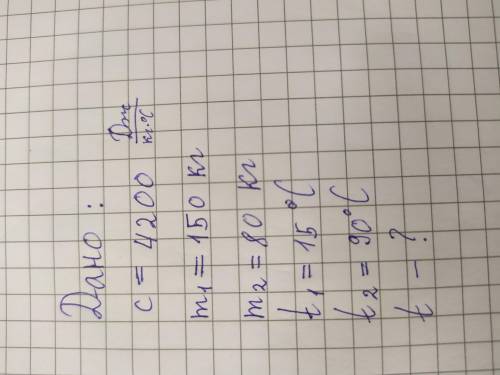 Дано:
c = 4200 Дж/кг·°C
m₁ = 150 кг
m₂ = 80 кг
t₁ = 15°C
t₂ = 90°C
t - ?